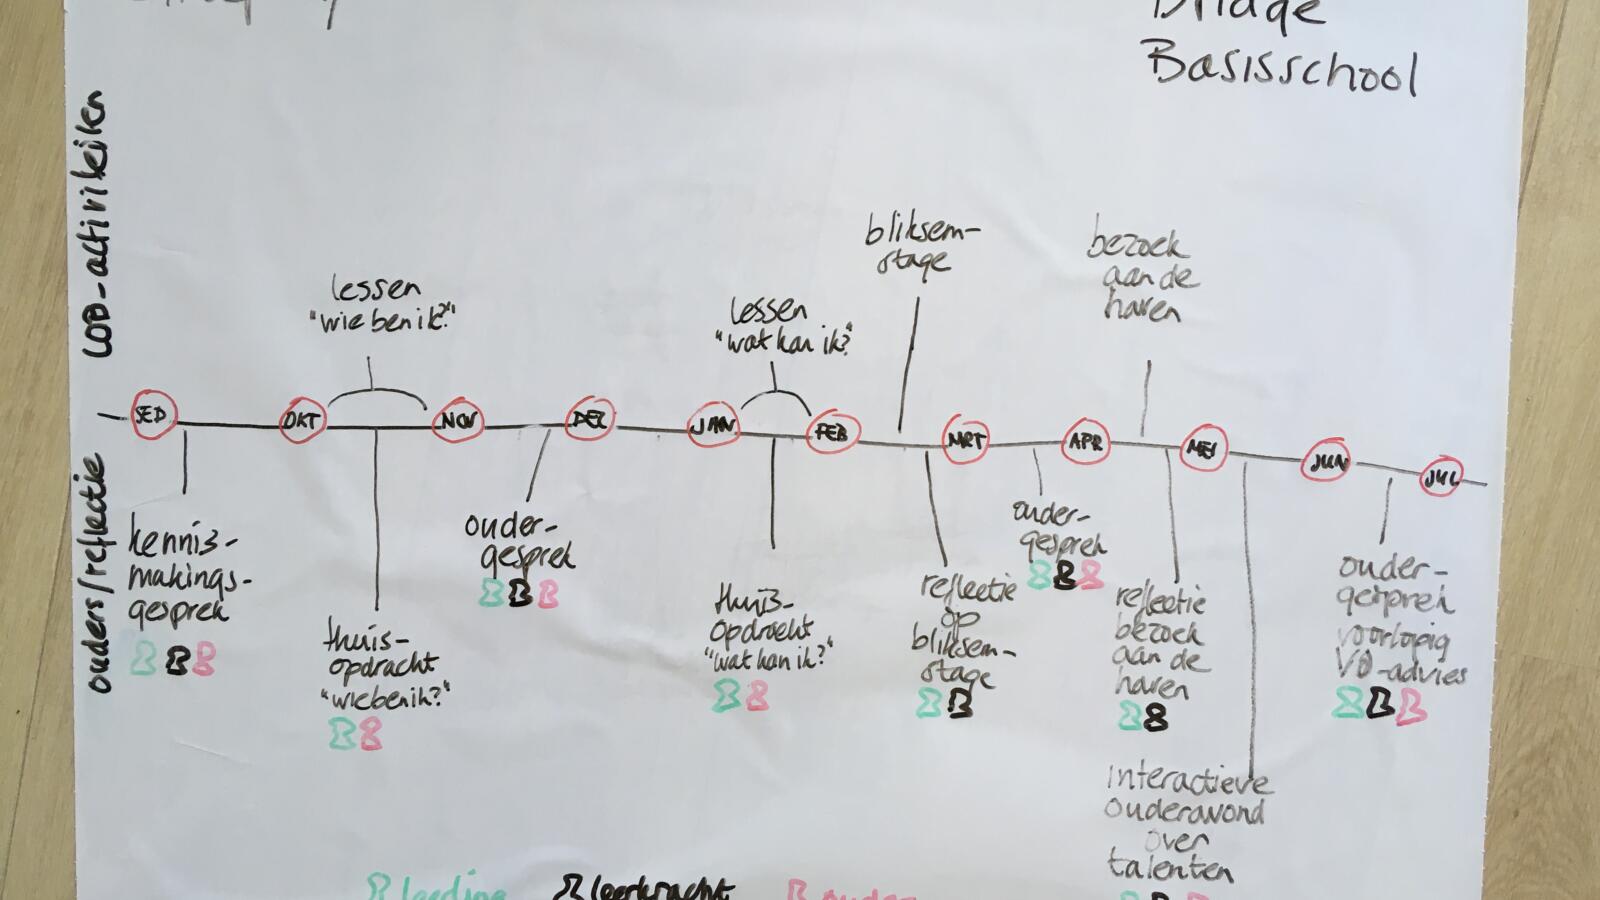 Bridge
Basisschool
LOB-activiteiten
lessen
"wie ben ik?"
lessen
"wat kan ik?"
bliksem-
stage
bezoek
aan de
haven
SEP
OKT
NOV
DEC
JAN
FEB
MRT
APR
MEI
JUN
JUL
ouders/reflectie
kennis-
makings-
gesprek
thuis-
opdracht
"wie ben ik?"
ouder-
gesprek
thuis-
opdracht
"wat kan ik?"
reflectie
op
bliksem-
stage
ouder-
gesprek
reflectie
bezoek
aan de
haven
interactieve
ouderavond
over
talenten
ouder-
gesprek
voorlopig
VO-advies
leerling
leerkracht
ouder